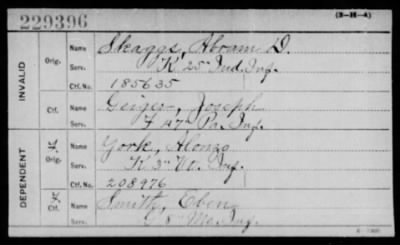 229396
(3-111-A)
INVALID
Orig.
Name Skaggs, Abram D.
Serv. K 25" Ind. Inf.
Ctf. No. 185635
Ctf.
Name Geiger, Joseph
Serv. F 47" Pa. Inf.
DEPENDENT
Orig.
Name York, Alonzo
Serv. K 3" Vt. Inf.
Ctf. No. 208976
Ctf.
Name Smith, Eben
Serv. 8" Me. Inf.